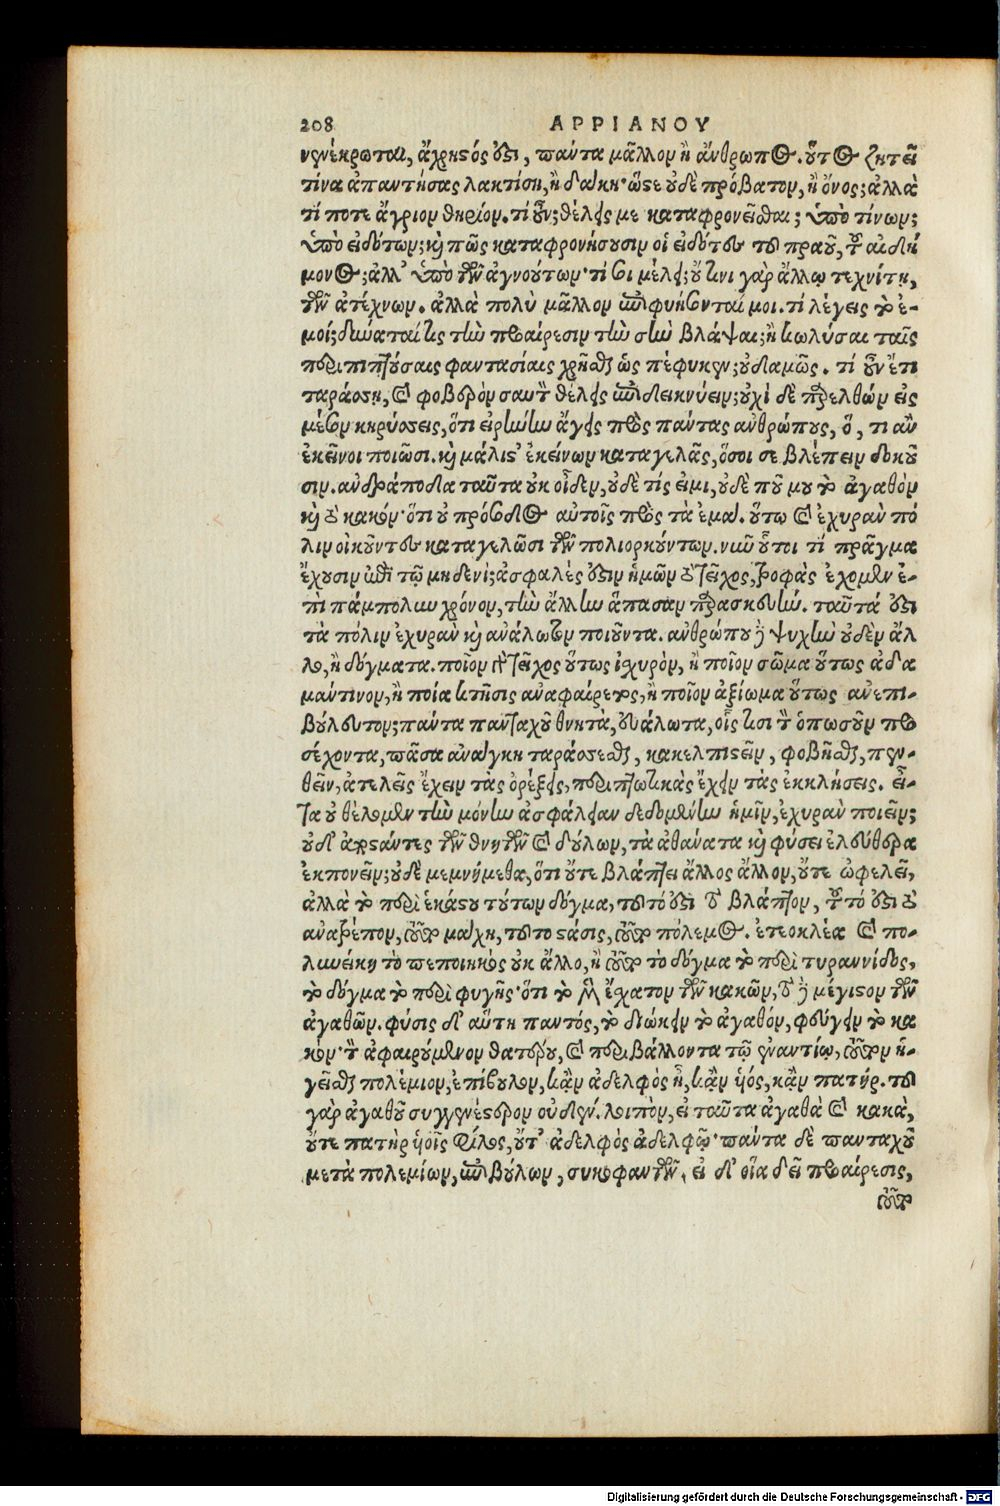 208 ΑΡΡΙΑΝΟΥ
νενέκρωται, ἄχρηστός ἐστι, πάντα μᾶλλον ἢ ἄνθρωπος. οὗτος ζητεῖ
τίνα ἀπαντήσας λακτίσῃ, ἢ δάκῃ· ὥστε οὐδὲ πρόβατον, ἢ ὄνος; ἀλλὰ
τί ποτε ἄγριον θηρίον. τί οὖν; θέλεις με καταφρονεῖσθαι; ὑπὸ τίνων;
ὑπὸ εἰδότων; καὶ πῶς καταφρονήσουσιν οἱ εἰδότες τοῦ πραοῦ, τοῦ αἰδή
μονος; ἀλλ' ὑπὸ τῶν ἀγνοούντων· τί σοι μέλει; οὔτινι γὰρ ἄλλῳ τεχνίτῃ,
τῶν ἀτέχνων. ἀλλὰ πολὺ μᾶλλον ἐπιφυήσονταί μοι. τί λέγεις τὸ ἐ-
μοί; δύναταί τις τὴν προαίρεσιν τὴν σὴν βλάψαι; ἢ κωλύσαι ταῖς
προσπιπτούσαις φαντασίαις χρῆσθαι ὡς πέφυκεν; οὐδαμῶς. τί οὖν ἔτι
ταράσσῃ, καὶ φοβερὸν σαυτὸν θέλεις ἐπιδεικνύειν; οὐχὶ δὲ παρελθὼν εἰς
μέσον κηρύσσεις, ὅτι εἰρήνην ἄγεις πρὸς πάντας ἀνθρώπους, ὅ, τι ἂν
ἐκεῖνοι ποιῶσι. καὶ μάλιστ' ἐκείνων καταγελᾷς, ὅσοι σε βλέπειν δοκοῦ
σιν. ἀνδράποδα ταῦτα οὐκ οἶδεν, οὐδὲ τίς εἰμι, οὐδὲ ποῦ μου τὸ ἀγαθὸν
καὶ τὸ κακόν· ὅτι οὐ πρόσοδος αὐτοῖς πρὸς τὰ ἐμά. οὕτω καὶ ἐχυρὰν πό
λιν οἰκοῦντες καταγελῶσι τῶν πολιορκούντων. νῦν οὗτοι τί πρᾶγμα
ἔχουσιν ἐπὶ τῷ μηδενί; ἀσφαλές ἐστιν ἡμῶν τὸ τεῖχος, τροφὰς ἔχομεν ἐ-
πὶ πάμπολυν χρόνον, τὴν ἄλλην ἅπασαν παρασκευήν. ταῦτά ἐστι
τὰ πόλιν ἐχυρὰν καὶ ἀνάλωτον ποιοῦντα. ἀνθρώπου δὲ ψυχὴν οὐδὲν ἄλ
λο, ἢ δόγματα. ποῖον γὰρ τεῖχος οὕτως ἰσχυρὸν, ἢ ποῖον σῶμα οὕτως ἀδα
μάντινον, ἢ ποία κτῆσις ἀναφαίρετος, ἢ ποῖον ἀξίωμα οὕτως ἀνεπι-
βούλευτον; πάντα πανταχοῦ θνητὰ, εὐάλωτα, οἷς τισι τὸν ὁπωσοῦν προ
σέχοντα, πᾶσα ἀνάγκη ταράσσεσθαι, κακελπιστεῖν, φοβῆσθαι, πεν-
θεῖν, ἀτελεῖς ἔχειν τὰς ὀρέξεις, περιπτωτικὰς ἔχειν τὰς ἐκκλήσεις. εἶ-
τα οὐ θέλομεν τὴν μόνην ἀσφάλειαν δεδομένην ἡμῖν, ἐχυρὰν ποιεῖν;
οὐδ' ἀποστάντες τῶν θνητῶν καὶ δούλων, τὰ ἀθάνατα καὶ φύσει ἐλεύθερα
ἐκπονεῖν; οὐδὲ μεμνήμεθα, ὅτι οὔτε βλάπτει ἄλλος ἄλλον, οὔτε ὠφελεῖ,
ἀλλὰ τὸ περὶ ἑκάστου τούτων δόγμα, τοῦτό ἐστι τὸ βλάπτον, τοῦτό ἐστι τὸ
ἀνατρέπον, τοῦτο μάχη, τοῦτο στάσις, τοῦτο πόλεμος. ἐτεοκλέα καὶ πο-
λυνείκη τὸ πεποιηκὸς οὐκ ἄλλο, ἢ τοῦτο τὸ δόγμα τὸ περὶ τυραννίδος,
τὸ δόγμα τὸ περὶ φυγῆς· ὅτι τὸ μὲν ἔσχατον τῶν κακῶν, τὸ δὲ μέγιστον τῶν
ἀγαθῶν. φύσις δ' αὕτη παντός, τὸ διώκειν τὸ ἀγαθόν, φεύγειν τὸ κα
κόν· τὸν ἀφαιρούμενον θατέρου, καὶ περιβάλλοντα τῷ ἐναντίῳ, τοῦτον ἡ-
γεῖσθαι πολέμιον, ἐπίβουλον, κἂν ἀδελφὸς ᾖ, κἂν υἱός, κἂν πατήρ. τοῦ
γὰρ ἀγαθοῦ συγγενέστερον οὐδέν. λοιπὸν, εἰ ταῦτα ἀγαθὰ καὶ κακὰ,
οὔτε πατὴρ υἱοῖς φίλος, οὔτ' ἀδελφὸς ἀδελφῷ· πάντα δὲ πανταχοῦ
μετὰ πολεμίων, ἐπιβούλων, συκοφαντῶν. εἰ δ' οἵα δεῖ προαίρεσις,
τοῦτο
Digitalisierung gefördert durch die Deutsche Forschungsgemeinschaft - DFG